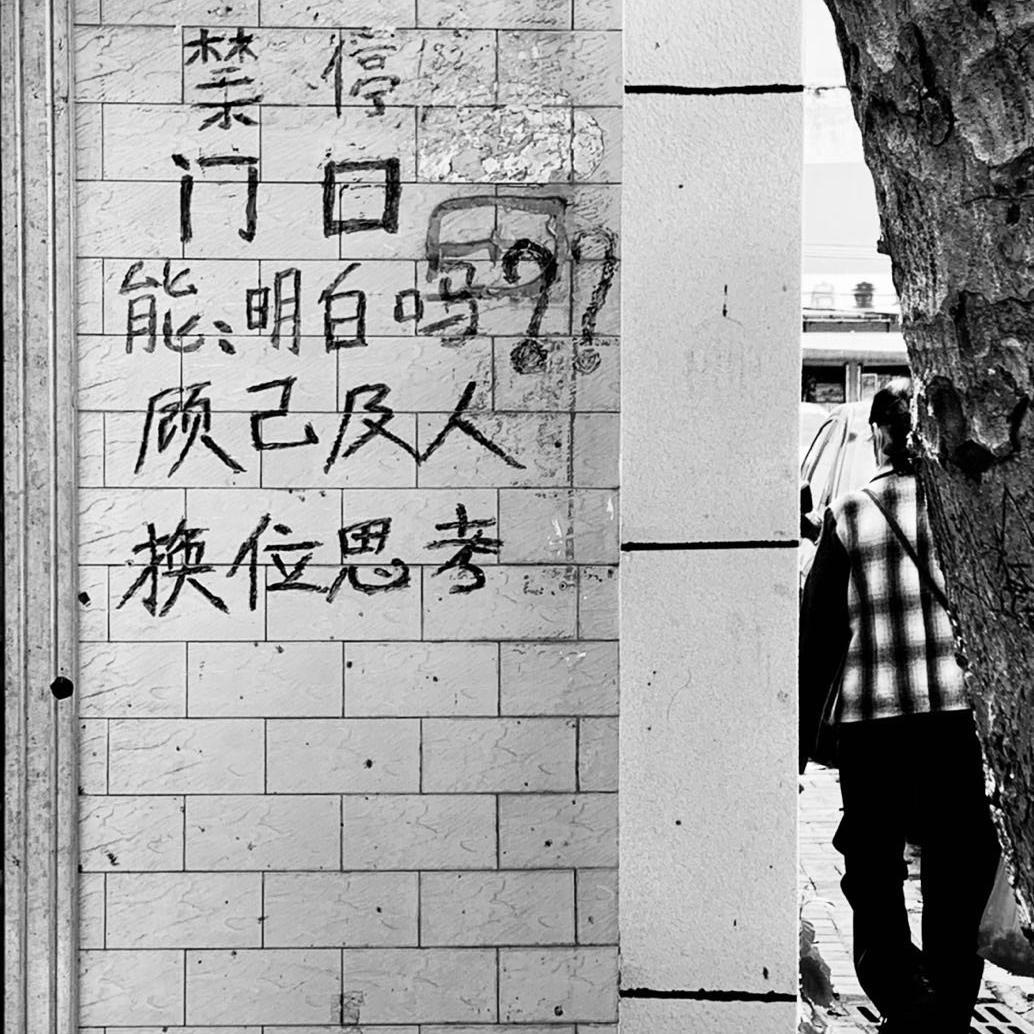 禁停
门口
能明白吗?!
顾己及人
换位思考